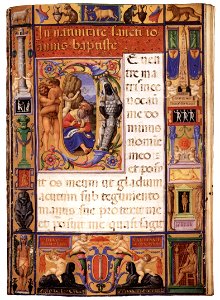 In nativitate sancti io
annis baptiste
e ven
tre ma
tris mee
vocavit
me do
minus
nomine
meo: et
posuit
os meum ut gladium
acutum sub tegumento
manus sue protexit me
et posuit me quasi sagit